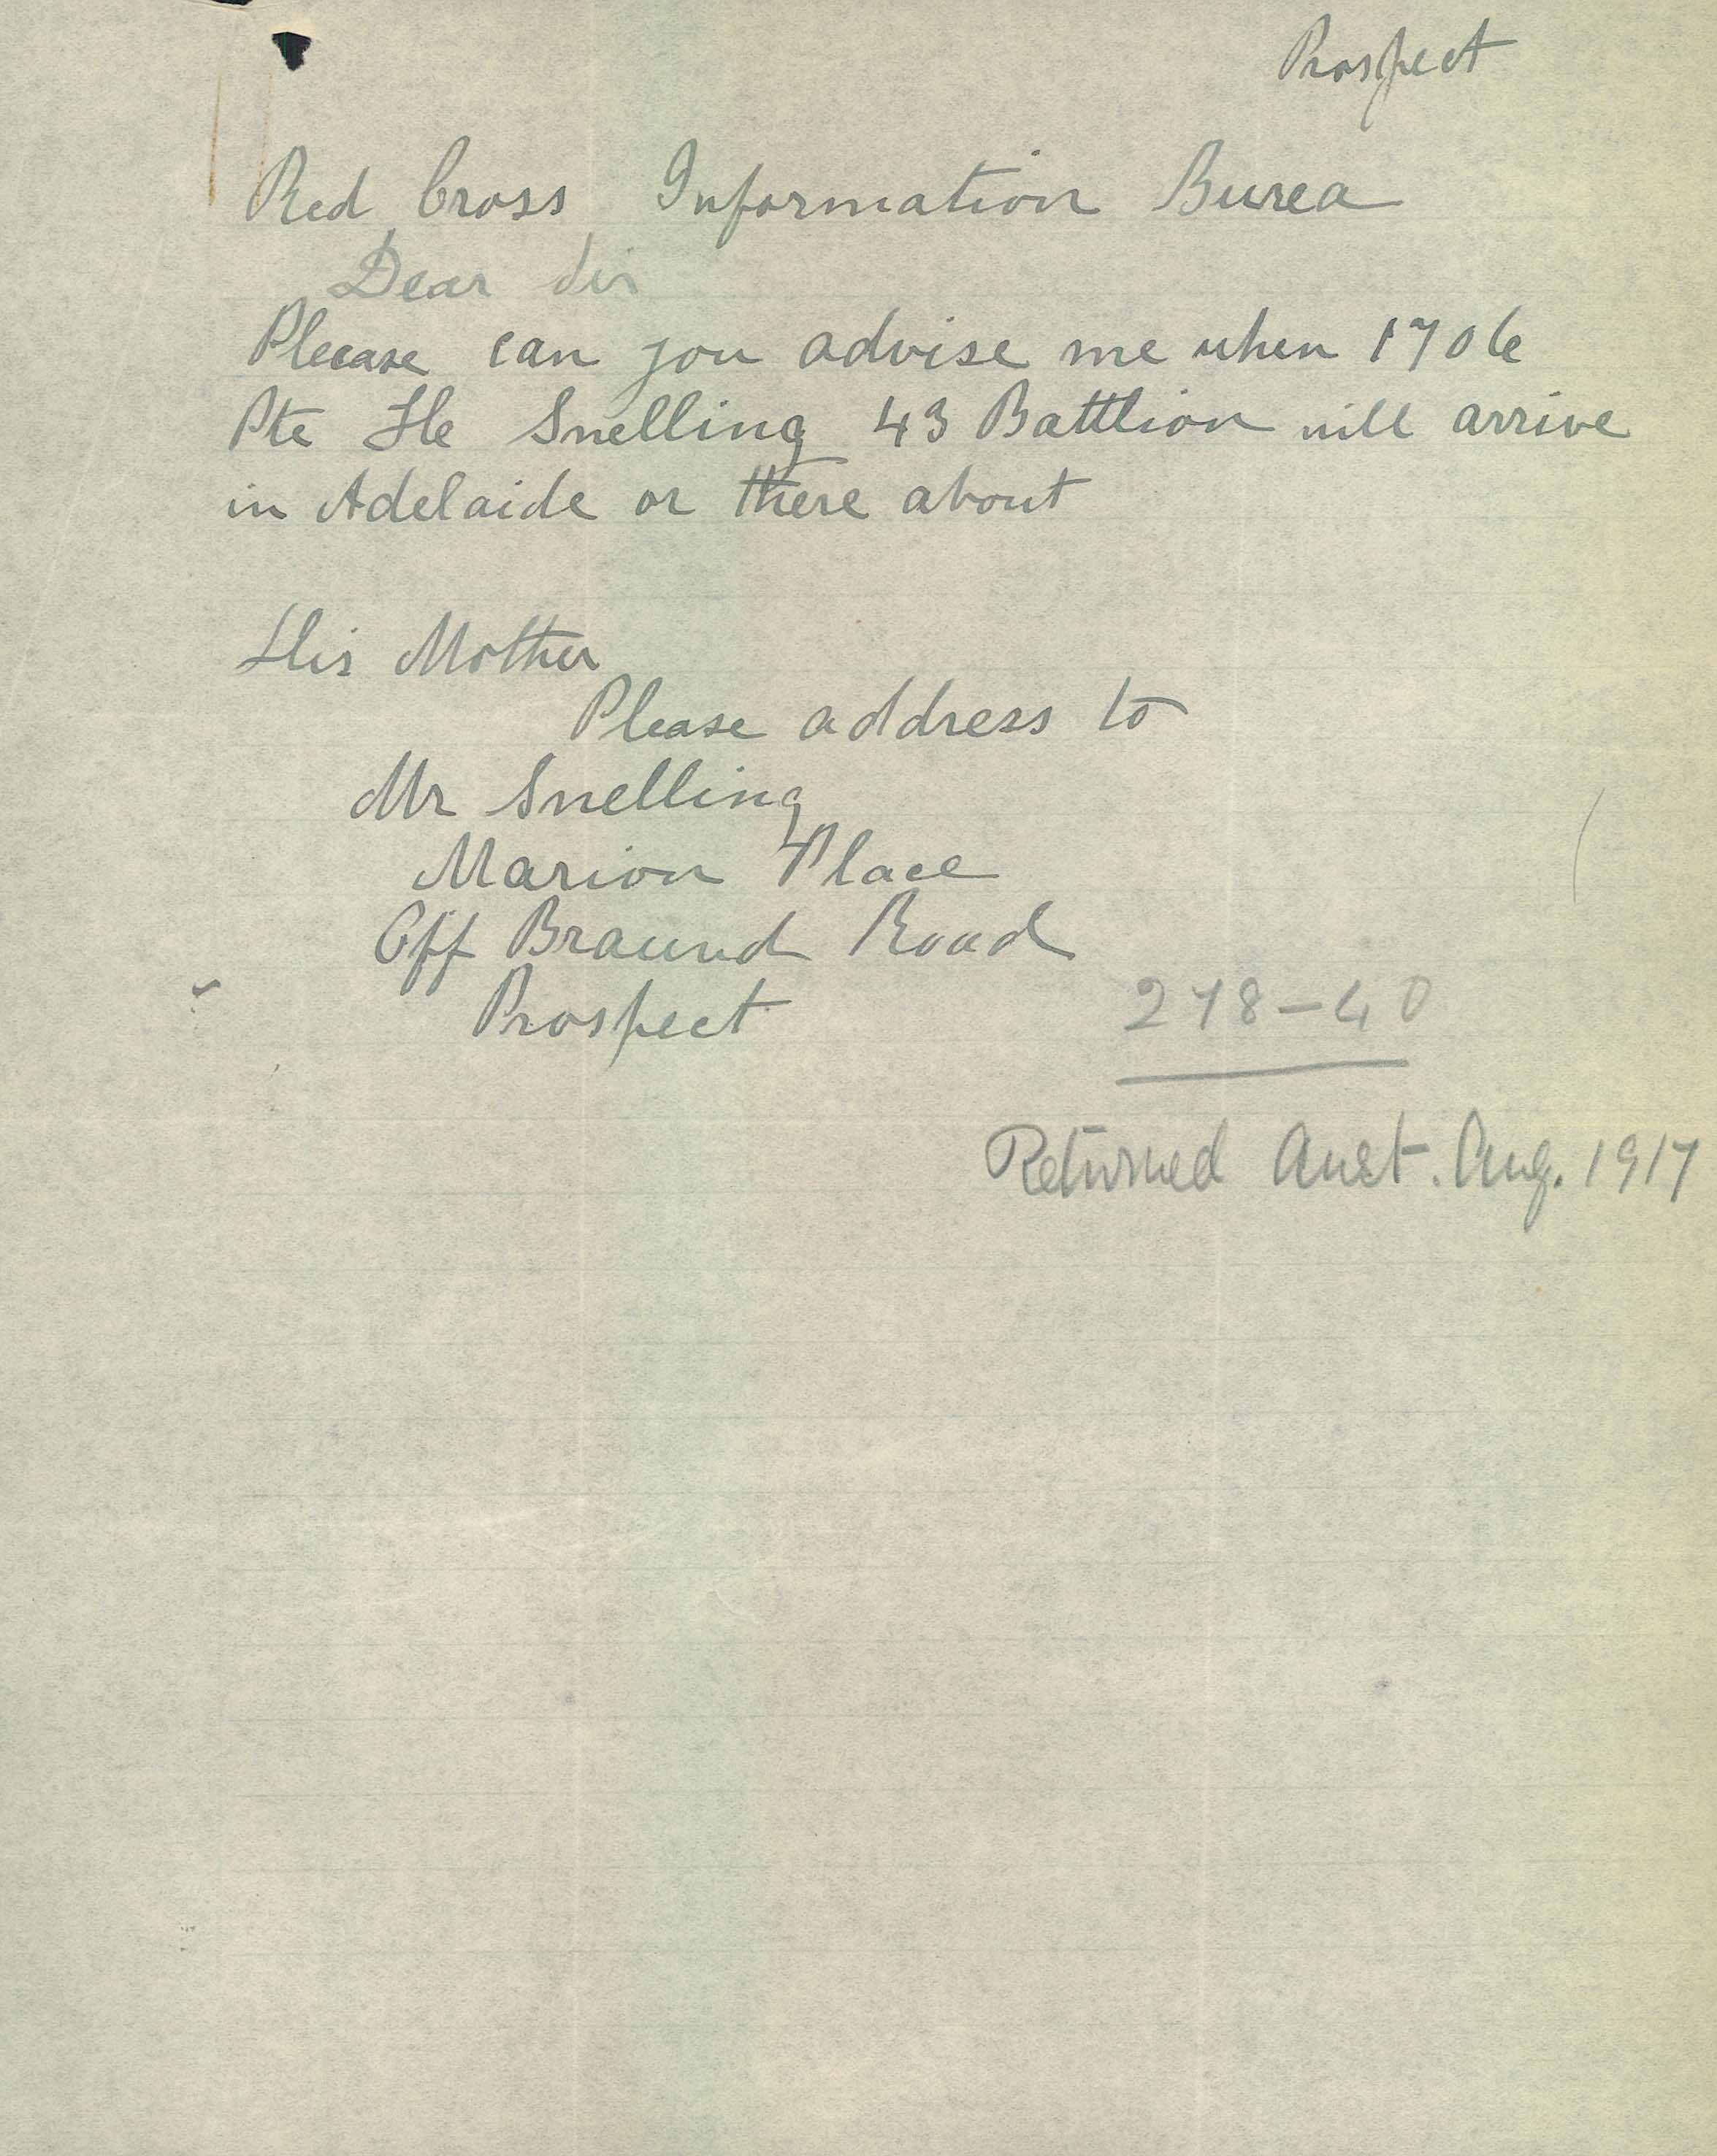 Prospect
Red Cross Information Burea
Dear Sir
Please can you advise me when 1706
Pte He Snelling 43 Battlion will arrive
in Adelaide or there about
His Mother
Please address to
Mr Snelling
Marion Place
Off Braund Road
Prospect
278-40
Returned Aust. Aug. 1917